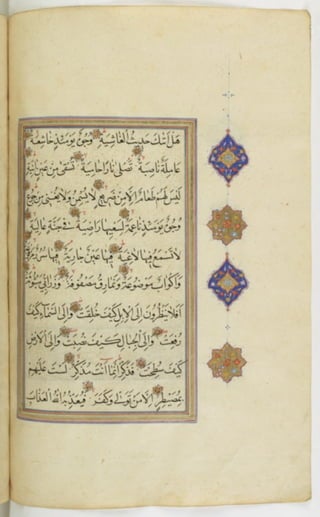 هَلْ أَتٰيكَ حَدِيثُ الْغَاشِيَةِ وُجُوهٌ يَوْمَئِذٍ خَاشِعَةٌ
عَامِلَةٌ نَاصِبَةٌ تَصْلٰى نَارًا حَامِيَةً تُسْقٰى مِنْ عَيْنٍ اٰنِيَةٍ
لَيْسَ لَهُمْ طَعَامٌ اِلَّا مِنْ ضَرِيعٍ لَا يُسْمِنُ وَلَا يُغْنِى مِنْ جُوعٍ
وُجُوهٌ يَوْمَئِذٍ نَاعِمَةٌ لِسَعْيِهَا رَاضِيَةٌ فِى جَنَّةٍ عَالِيَةٍ
لَا تَسْمَعُ فِيهَا لَاغِيَةً فِيهَا عَيْنٌ جَارِيَةٌ فِيهَا سُرُرٌ مَرْفُوعَةٌ
وَاَكْوَابٌ مَوْضُوعَةٌ وَنَمَارِقُ مَصْفُوفَةٌ وَزَرَابِىُّ مَبْثُوثَةٌ
اَفَلَا يَنْظُرُونَ اِلَى الْاِبِلِ كَيْفَ خُلِقَتْ وَاِلَى السَّمَاءِ كَيْفَ
رُفِعَتْ وَاِلَى الْجِبَالِ كَيْفَ نُصِبَتْ وَاِلَى الْاَرْضِ
كَيْفَ سُطِحَتْ فَذَكِّرْ اِنَّمَا اَنْتَ مُذَكِّرٌ لَسْتَ عَلَيْهِمْ
بِمُصَيْطِرٍ اِلَّا مَنْ تَوَلّٰى وَكَفَرَ فَيُعَذِّبُهُ اللّٰهُ الْعَذَابَ